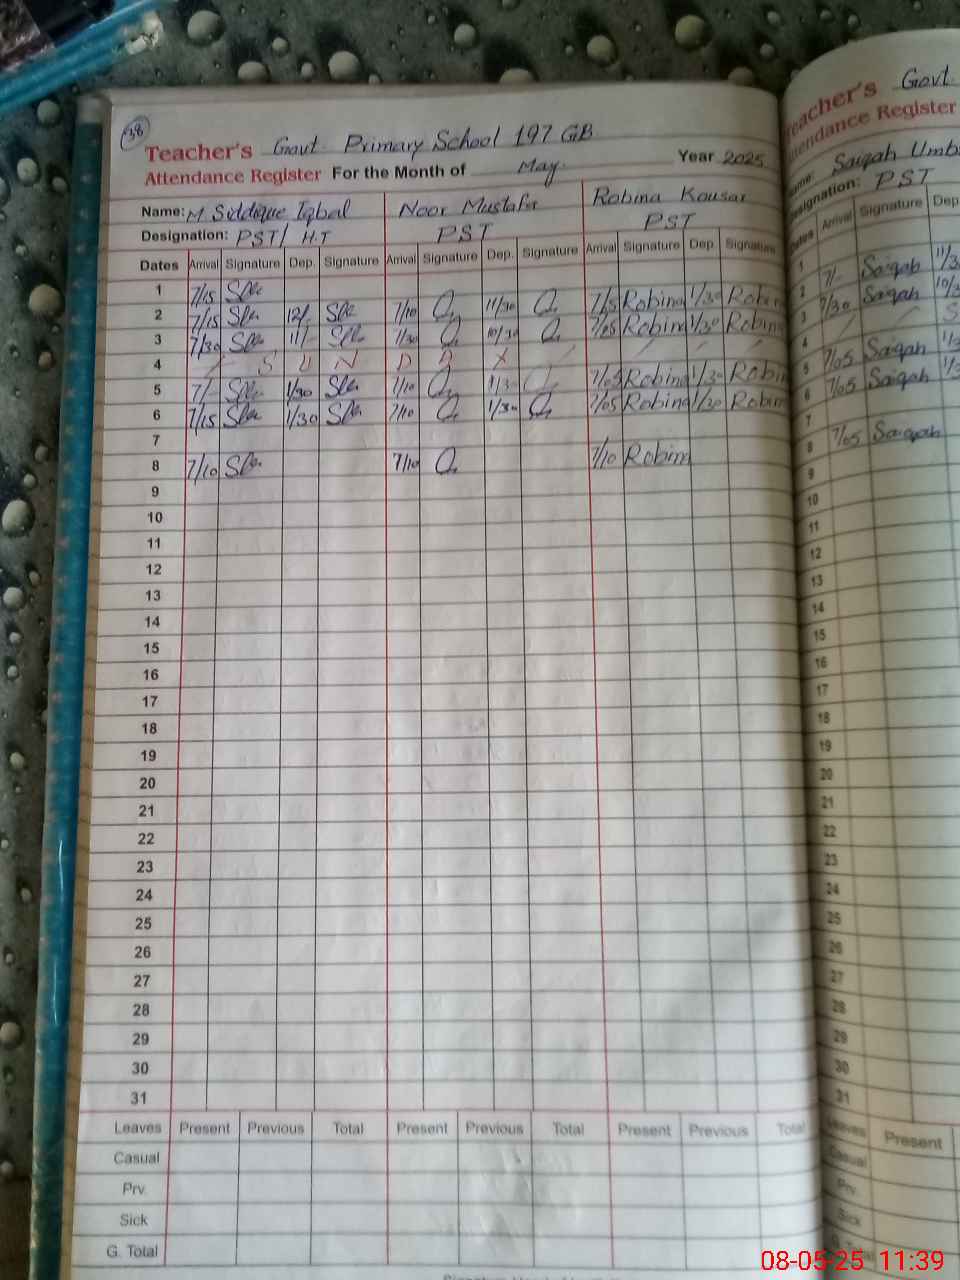 38
Teacher's Govt. Primary School 197 GB
Attendance Register For the Month of May. Year 2025
Name: M Siddique Iqbal Noor Mustafa Robina Kousar
Designation: PST/ H.T PST PST
Dates Arrival Signature Dep. Signature Arrival Signature Dep. Signature Arrival Signature Dep. Signature
1 7/15
2 7/15 12/ 7/10 11/30 7/5 Robina 1/30 Robina
3 7/30 11/- 7/30 10/30 7/05 Robina 1/30 Robina
4 S U N D A Y
5 7/- 1/30 7/10 7/05 Robina 1/30 Robina
6 7/15 1/30 7/10 1/30 7/05 Robina 1/30 Robina
7
8 7/10 7/10 7/10 Robina
9
10
11
12
13
14
15
16
17
18
19
20
21
22
23
24
25
26
27
28
29
30
31
Leaves Present Previous Total Present Previous Total Present Previous Total
Casual
Prv.
Sick
G. Total
Teacher's Govt.
Attendance Register
Name: Saiqah Umb
Designation: PST
Dates Arrival Signature Dep
1 7/- Saiqah 11/3
2 7/30 Saiqah 10/3
3 S
4
5 7/05 Saiqah 1/3
6 7/05 Saiqah 1/3
7
8 7/05 Saiqah
9
10
11
12
13
14
15
16
17
18
19
20
21
22
23
24
25
26
27
28
29
30
31
Leaves Present
Casual
Prv.
Sick
G. Total
08-05-25 11:39